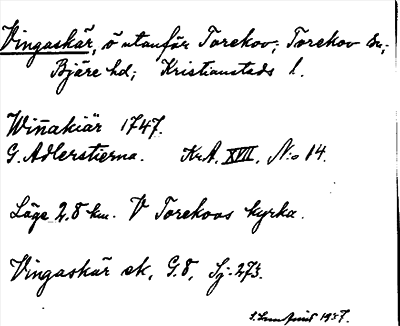 Vingaskär, ö utanför Torekov; Torekov sn,
Bjäre hd; Kristianstads l.
Wiñakiär 1747.
G. Adlerstierna. Kr.A. XVII. N:o 14.
Läge 2.8 km. V Torekovs kyrka.
Vingaskär ek. G.8. Sj. 273.
1957.